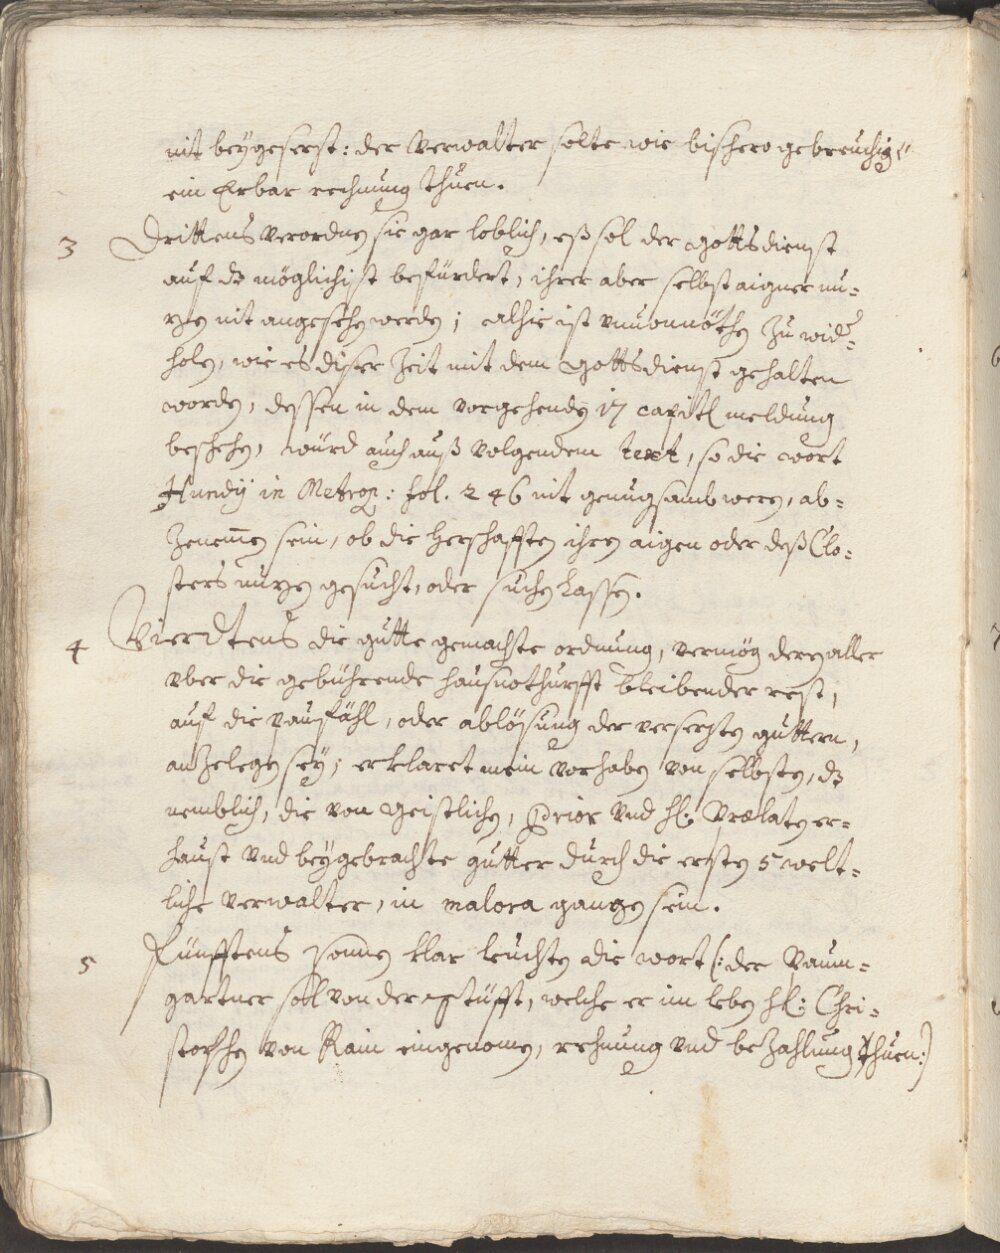 nit beÿgesetzt: der Verwalter solte wie bishero gebreuchig
ein Erbar rechnung thuen.
3 Drittens verordnen sie gar loblich, eß sol der gottsdienst
auf dz möglichist befürdert, ihrer aber selbst aigner nu-
zen nit angesehen werden; Alhie ist vnuonnöthen zu wid-
holen, wie es diser Zeit mit dem gottsdienst gehalten
worden, dessen in dem vorgehenden 17 capitl meldung
beschehen, würd auch auß volgendem text, so die wort
Hundij in Metrop: fol. 246 nit genugsamb weren, ab-
zenemen sein, ob die herschafften ihren aigen oder deß Clo-
sters nuzen gesucht, oder suchen lassen.
4 Vierdtens die gutte gemachte ordnung, vermög deren aller
vber die gebührende hausnothurfft bleibender rest,
auf die paufähl, oder ablösung der versetzten guttern,
anzelegen seÿ; erklaret mein vorhaben von selbsten, dz
nemblich, die von geistlichen, Prior vnd hl: Prælaten er-
haust vnd beÿgebrachte gutter durch die ersten 5 welt-
liche verwalter, in malora gangen sein.
5 Fünfftens Sonnen klar leuchten die wort (: der Paum-
gartner soll von der stüfft, welche er im leben hl: Chri-
stophen von Rain eingenomen, rechnung vnd bezahlung thuen:)